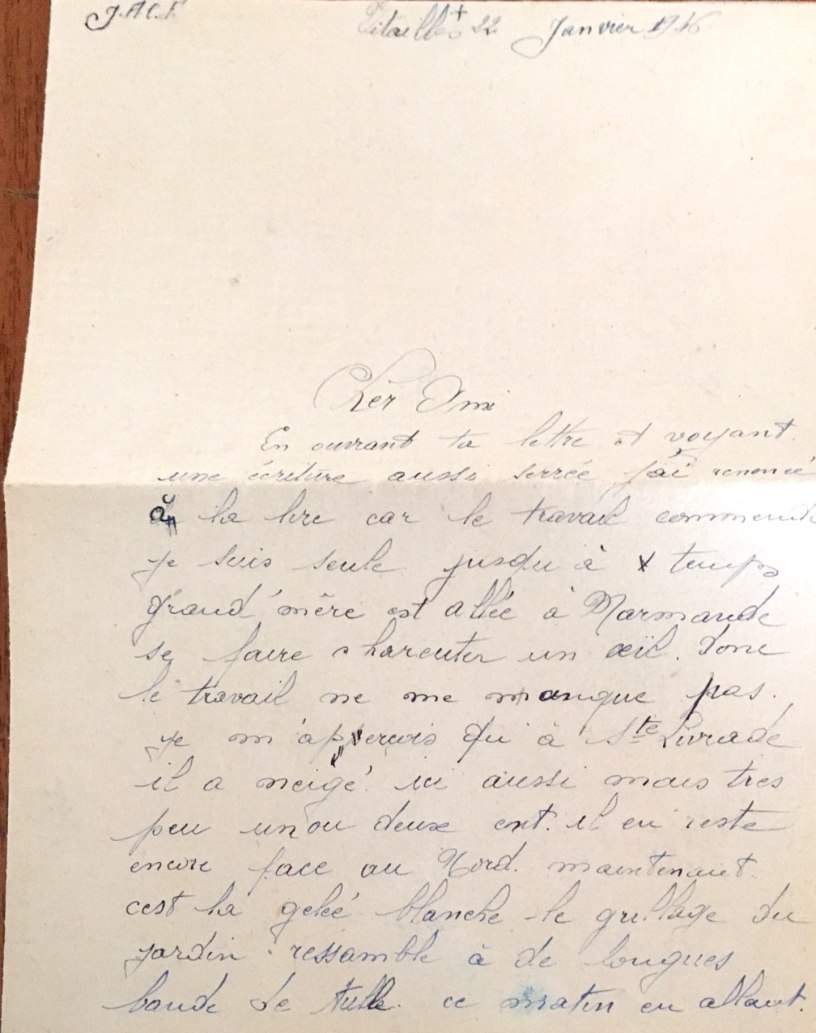 J.A.C.F. Pitaillé + 22 Janvier 1946
Chèr Ami
En ouvrant ta lettre et voyant
une écriture aussi serrée j'ai renoncé
à la lire car le travail commande
je suis seule jusqu'à x temps
grand'mère est allée à Marmande
se faire charcuter un œil. Donc
le travail ne me manque pas.
je m'apperçois qu'à Ste Livrade
il a neigé ici aussi mais tres
peu un ou deux cent. il en reste
encore face au Nord. maintenant
c'est la gelée blanche le grillage du
jardin ressamble à de longues
bande de tulle. ce matin en allant.